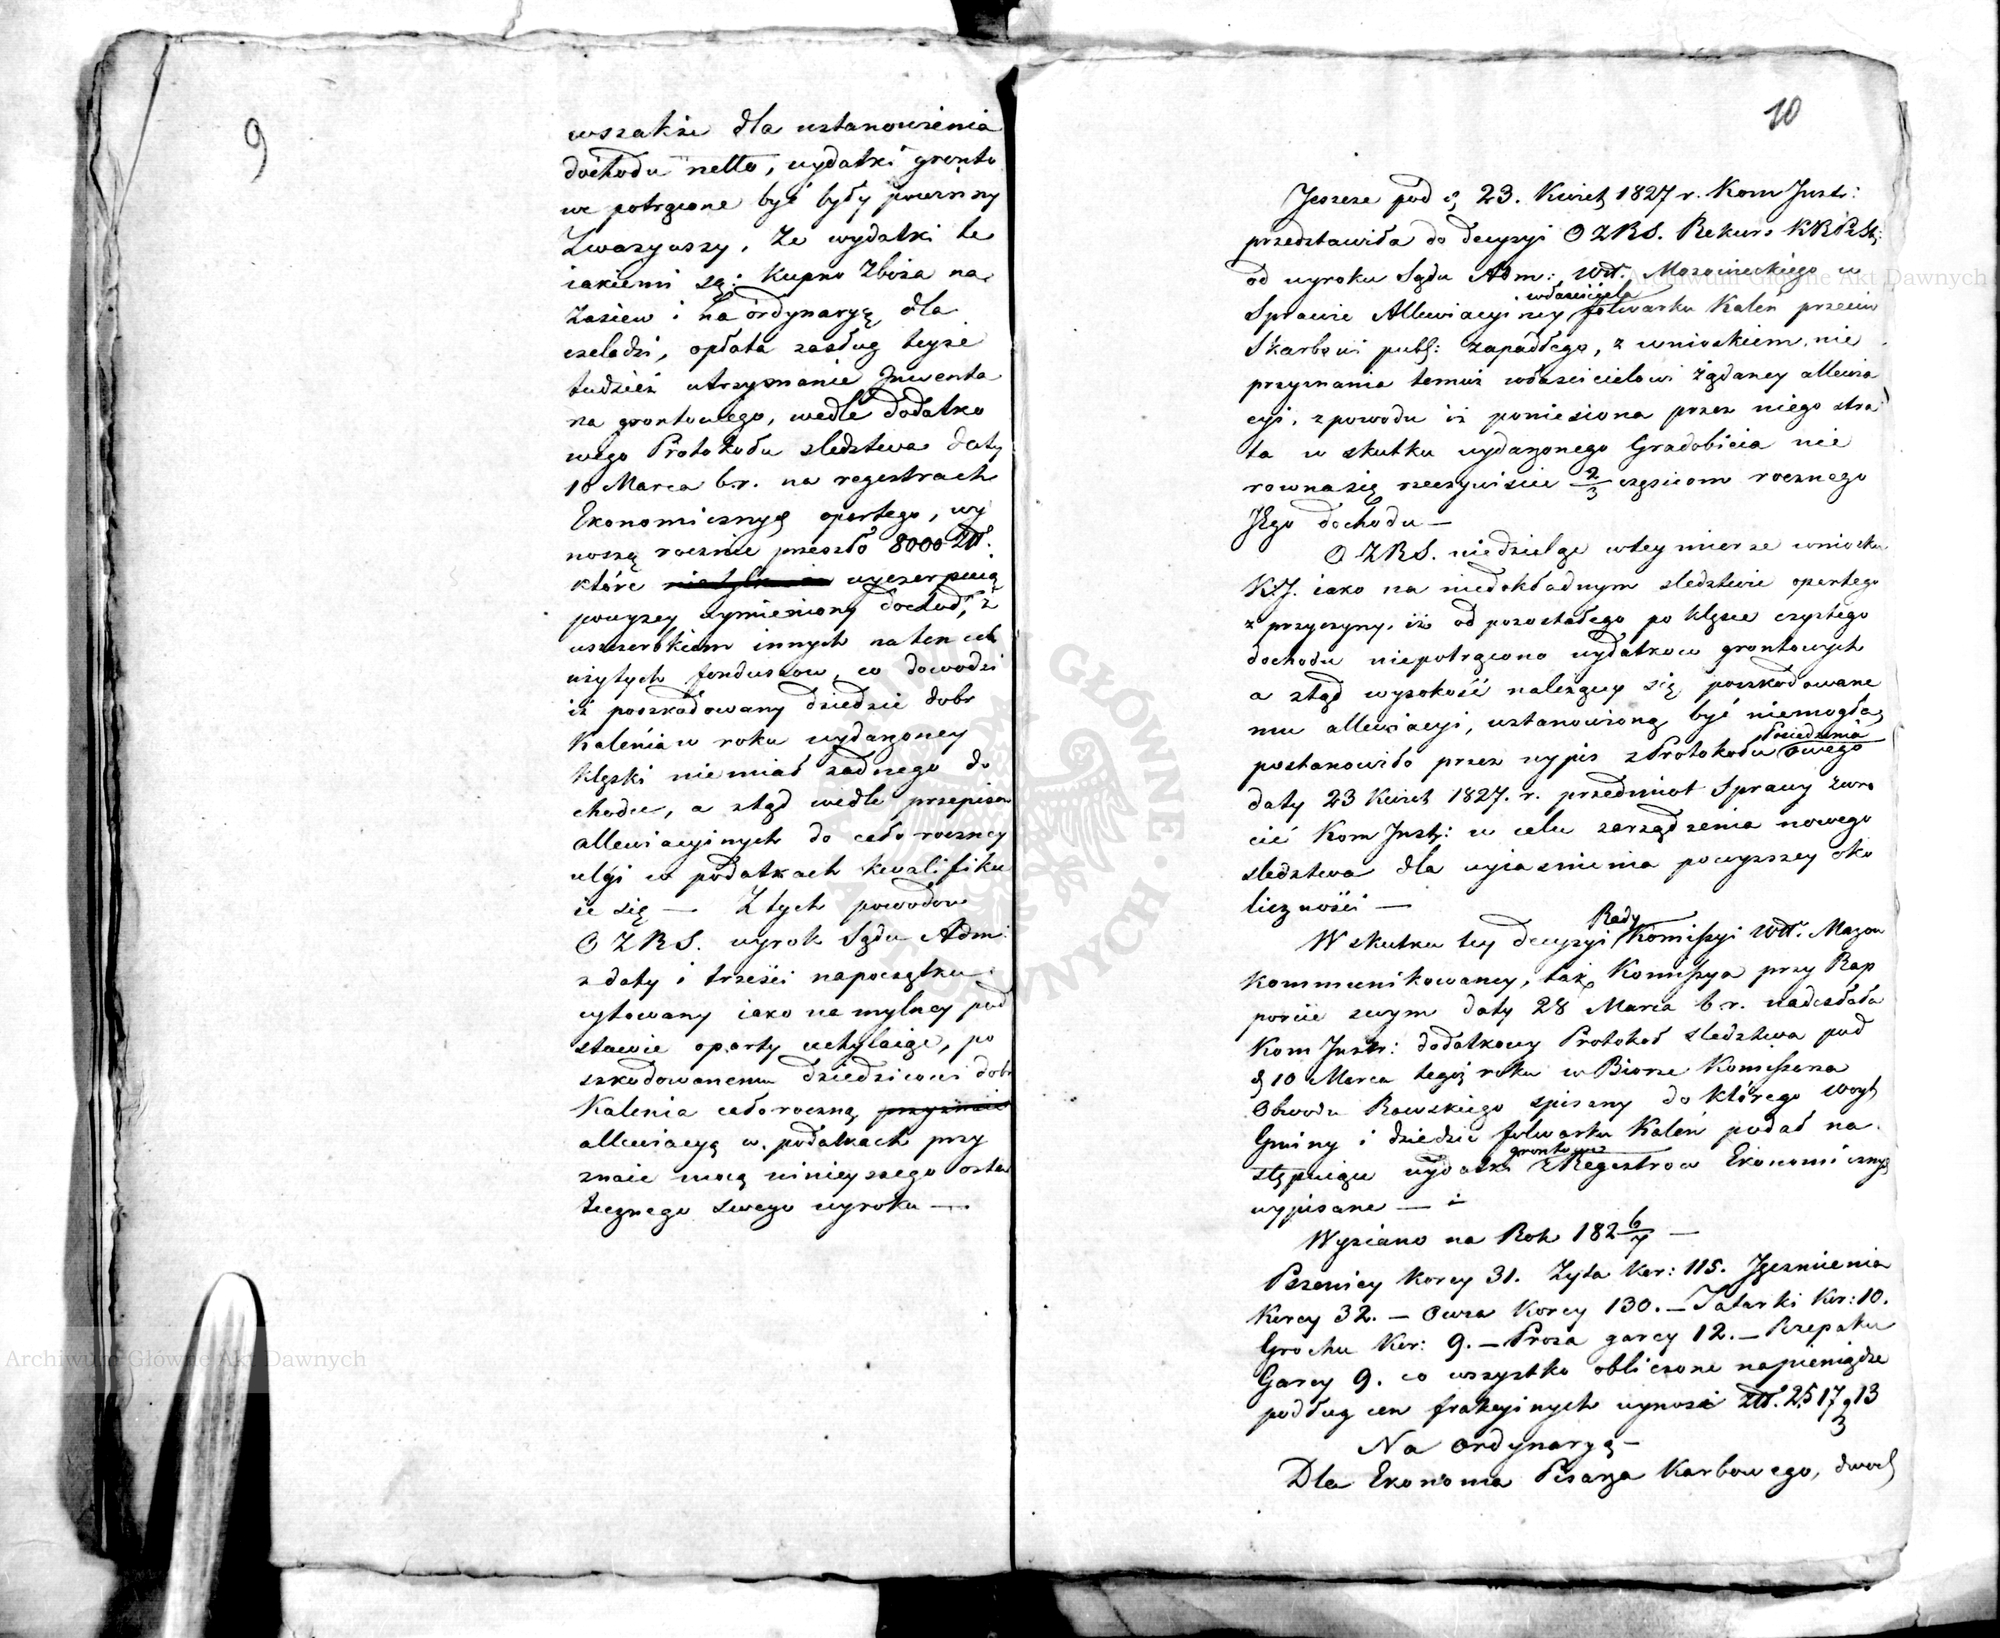 9
wszakże dla ustanowienia
dochodu netto, wydatki gronto
we potrącone być były powinny
Zważywszy, że wydatki te
iakiemi są: Kupno Zboża na
Zasiew i na ordynaryę dla
czeladzi, opłata zasług teyże
tudzież utrzymanie Inwenta
rza grontowego, wedle dodatko
wego Protokołu śledztwa daty
10 Marca b.r. na regestrach
Ekonomicznych opartego, wy
noszą rocznie przeszło 8000 Złł.
które wyczerpuią
powyżey wymieniony dochod, z
uszczerbkiem innych na ten cel
użytych funduszow, co dowodzi
iż poszkodowany dziedzic dobr
Kalenia w roku wydarzoney
klęski niemiał żadnego do
chodu, a ztąd wedle przepisow
allewiacyinych do cało roczney
ulgi w podatkach kwalifiku
ie się — Z tych powodow
O Z R S. wyrok Sądu Adm:
z daty i treści na początku
cytowany iako na mylney pod
stawie oparty uchylaiąc, po
szkodowanemu dziedzicowi dobr
Kalenia całoroczną przyznaie
allewiacyą w podatkach przy
znaie mocą ninieyszego osta
tecznego swego wyroku —
10
Jeszcze pod d. 23. Kwiet 1827 r. Kom Instr:
przedstawiła do decyzyi O Z R S. Rekurs K R P Sk:
od wyroku Sądu Adm: Wtt. Mazowieckiego w
właściciela
Sprawie Allewiacyiney folwarku Kaleń przeciw
Skarbowi publ: zapadłego, z wnioskiem nie
przyznania temuż właścicielowi żądaney allewia
cyi, z powodu iż poniesiona przez niego stra
ta w skutku wydarzonego Gradobicia nie
rowna się rzeczywiście 2/3 częściom rocznego
Jego dochodu —
O Z R S. niedzieląc w tey mierze wniosku
K.J. iako na niedokładnym śledztwie opartego
z przyczyny, iż od pozostałego po klęsce czystego
dochodu niepotrącono wydatkow grontowych
a ztąd wysokość należącey się poszkodowane
mu allewiacyi, ustanowioną być niemogła,
Posiedzenia
postanowiła przez wypis z Protokołu swego
daty 23 Kwiet 1827. r. przedmiot Sprawy zwro
cić Kom Instr: w celu zarządzenia nowego
śledztwa dla wyiaśnienia powyższey oko
liczności —
Rady
W skutku tey decyzyi Kommissyi Wtt. Mazow
kommunikowaney, taż Kommissya przy Rap
porcie swym daty 28 Marca b.r. nadesłała
Kom Instr: dodatkowy Protokoł śledztwa pod
d 10 Marca tegoż roku w Biorze Kommissarza
Obwodu Rawskiego spisany do którego Woyt
Gminy i dziedzic folwarku Kaleń podał na
grontowe
stępuiące wydatki z Regestrow Ekonomicznych
wypisane —
Wysiano na Rok 182 6/7 —
Pszenicy Korcy 31. Żyta Kor: 115. Jęczmienia
Korcy 32. — Owsa Korcy 130. — Tatarki Kor: 10.
Grochu Kor: 9. — Prosa garcy 12. — Rzepaku
Garcy 9. co wszystko obliczone na pieniądze
podług cen frakcyinych wynosi Złł. 2517 g 13
Na Ordynaryą —
Dla Ekonoma Pisarza Karbowego, dwoch
Archiwum Główne Akt Dawnych
Archiwum Główne Akt Dawnych